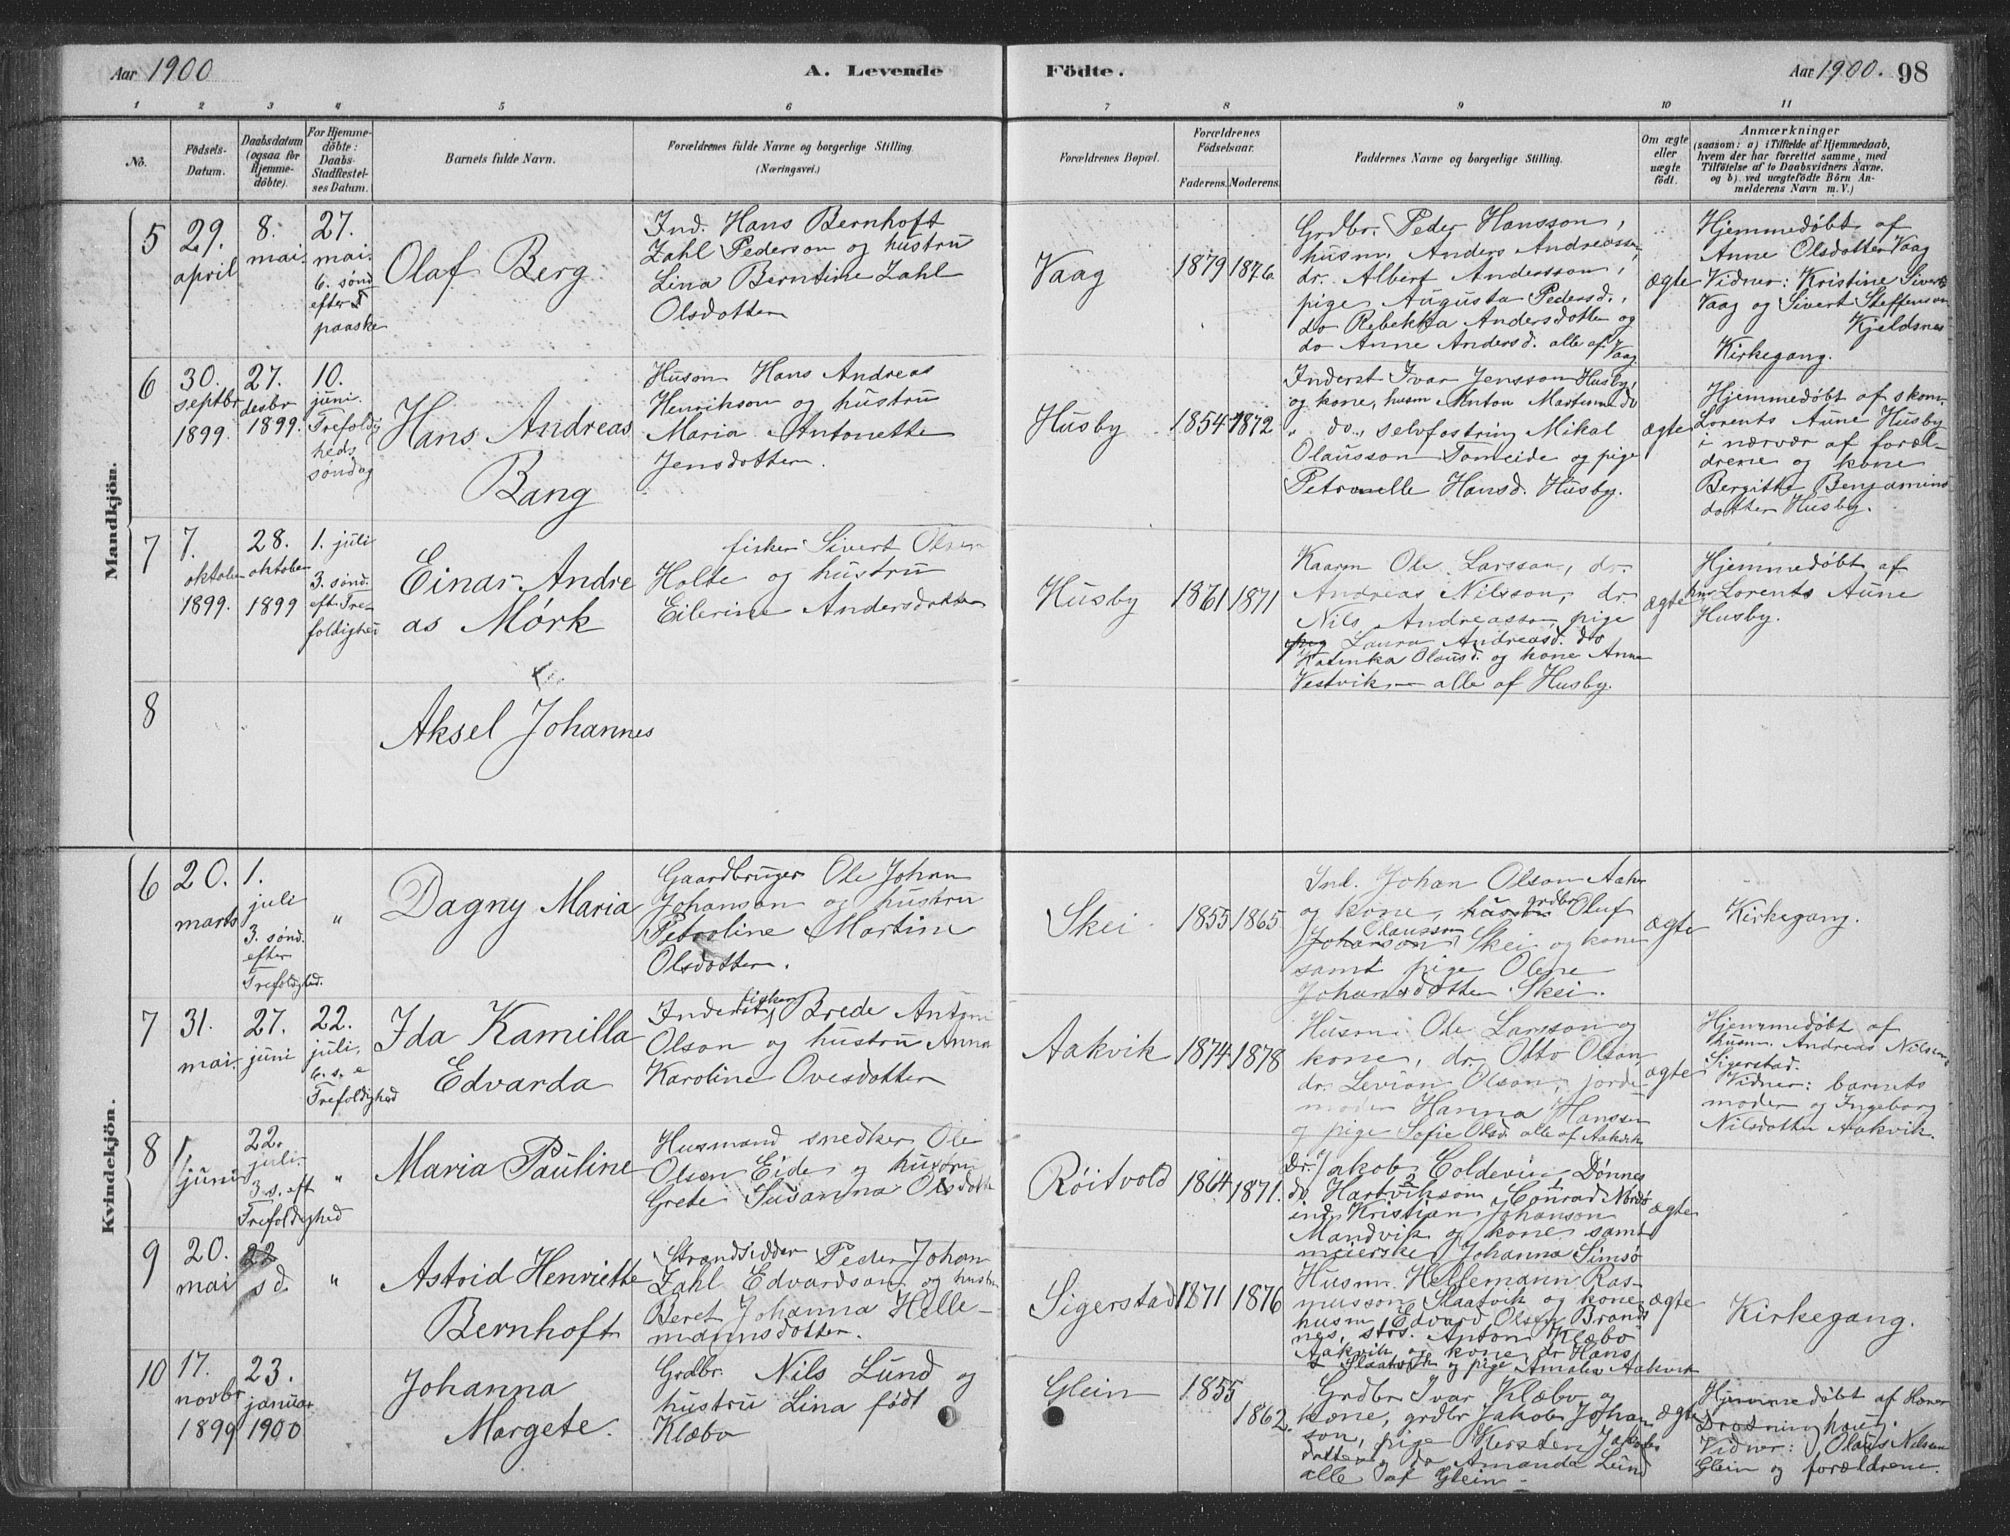 Aar 1900
A. Levende
Födte.
Aar 1900. 98
1 2 3 4 5 6 7 8 9 10 11
No.
Födsels-
Datum.
Daabsdatum
(ogsaa for
Hjemme-
döbte).
For Hjemme-
döbte:
Daabs-
Stadfæstel-
ses Datum.
Barnets fulde Navn.
Forældrenes fulde Navne og borgerlige Stilling
(Næringsvei.)
Forældrenes Bopæl.
Forældrenes
Födselsaar.
Faderens. Moderens.
Faddernes Navne og borgerlige Stilling.
Om ægte
eller
uægte
födt.
Anmærkninger
(saasom: a) i Tilfælde af Hjemmedaab,
hvem der har forrettet samme, med
Tilföielse af to Daabsvidners Navne,
og b) ved uægtefödte Börn An-
melderens Navn m. V.)
Mandkjön.
5
29.
april
8.
mai.
27.
mai.
6. sønd
efter
paaske
Olaf Berg
Ind. Hans Bernhoft
Zahl Pederson og hustru
Lina Berntine Zahl
Olsdotter
Vaag
1879
1876
Grdbr. Peder Hansson,
husm. Anders Andreasson,
dr. Albert Andersson,
pige Augusta Pedersd.,
do Rebekka Andersdotter og
do Anne Andersd. alle af Vaag
ægte
Hjemmedøbt af
Anne Olsdotter Vaag
Vidner: Kristine Siverts
Vaag og Sivert Steffenson
Kjeldsnes
Kirkegang.
6
30.
septbr
1899.
27.
desbr
1899.
10.
juni.
Trefoldig
heds
søndag
Hans Andreas
Bang
Husm Hans Andreas
Henrikson og hustru
Maria Antonette
Jensdotter.
Husby
1854
1872
Inderst Ivar Jensson Husby,
og kone, husm Anton Martinus do
" do., selvfostring Mikal
Olausson Tomeide og pige
Petronelle Hansd. Husby.
ægte
Hjemmedøbt af skom.
Lorents Aune Husby
i nærvær af foræl-
drene og kone
Bergitte Benjamins
dotter Husby.
7
7.
oktober
1899.
28.
oktober
1899
1. juli
3. sønd.
eft. Tre-
foldighed
Einar Andre
as Mórk
fisker Sivert Olsen
Holte og hustru
Eilerine Andersdotter
Husby
1861
1871
Kaarm Ole Larsson, dr.
Andreas Nilsson, dr.
Nils Andreasson, pige
Laura Andreasd. do
Katinka Olausd. og kone Anna
Vestvik – alle af Husby.
ægte
Hjemmedøbt af
Lorents Aune
Husby.
8
Aksel Johannes
Kvindekjön.
6
20.
marts
1.
juli
3. sønd.
efter
Trefoldighed.
"
Dagny Maria
Gaardbruger Ole Johan
Johanson og hustru
Petroline Martine
Olsdotter.
Skei
1855
1865
Ind. Johan Olson Aaker
og kone, grdbr Oluf
Olausson
Johanson, Skei og kone
samt pige Olene
Johansdotter Skei.
ægte
Kirkegang.
7
31.
mai.
27.
juni
22.
juli.
6. s. e
Trefoldighed
Ida Kamilla
Edvarda
fisker
Inderst, Brede Anton
Olson og hustru Anna
Karoline Ovesdotter
Aakvik
1874
1878
Husm. Ole Larsson og
kone, dr. Otto Olson
dr. Levion Olson, jorde
moder Hanna Hanssen
og pige Sofie Olsd. alle af Aakvik
ægte
Hjemmedøbt af
husm. Andreas Nilsen
Sigerstad.
Vidner: barnets
moder og Ingeborg
Nilsdotter Aakvik.
8
1.
juni
22.
juli.
3. s. eft
Trefoldighed
"
Maria Pauline
Husmand snedker Ole
Olsen Eide og hustru
Grete Susanna Olsdotter
Røitvold
1864
1871.
Dr. Jakob Coldevin Dønnes
do. Hartvikson Conrad Nordø
ind. Kristian Johanson
Mandvik og kone samt
meierske Johanna Simsø
ægte
9
20.
mai
22
sd.
"
Astrid Henriette
Bernhoft
Strandsidder Peder Johan
Zahl Edvardson og hustru
Beret Johanna Helle-
mannsdotter.
Sigerstad
1871
1876
Husm. Hellemann Ras-
musson Slaatvik og kone
husm. Edvard Olsen Brands
nes, strs. Anton Klæbo
Aakvik og kone, dr Hans
Slaatvik og pige Amalie Aakvik
ægte
Kirkegang.
10
17.
novbr
1899
23.
januar
1900
Johanna
Margete.
Grdbr. Nils Lund og
hustru Lina født
Klæbo
Glein
1855
1862.
Grdbr Ivar Klæbo og
kone, grdbr Jakob Johan
son, pige Kersten Jakobs
dotter og do Amanda Lund
alle af Glein –
ægte
Hjemmedøbt af
Vidner: Olaus Nilsen
Glein og forældrene.